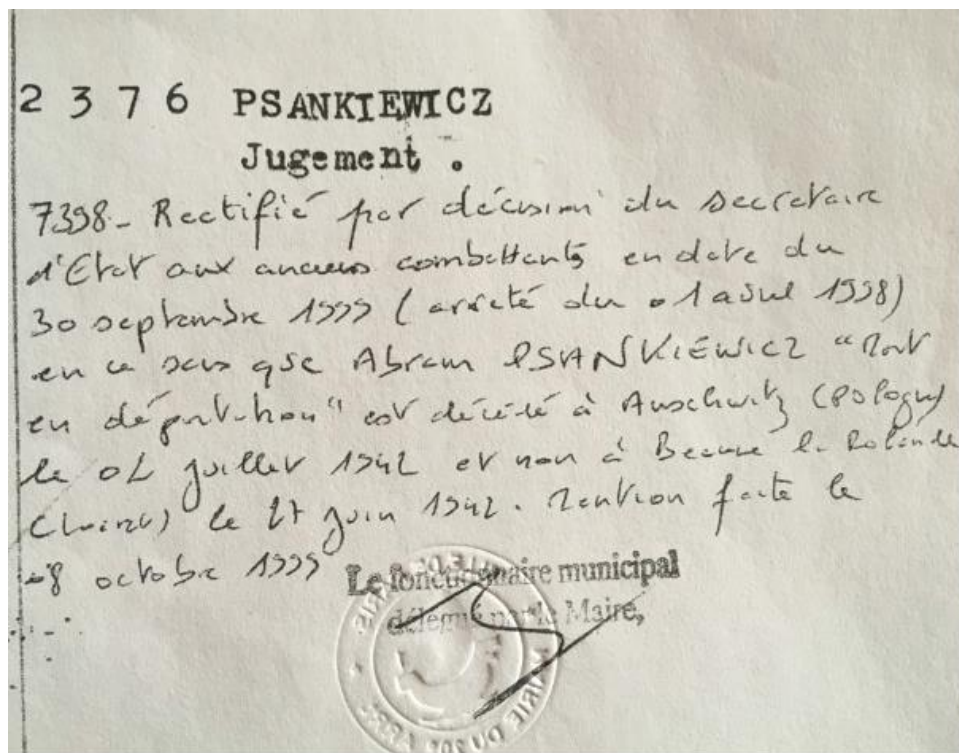 2 3 7 6 PSANKIEWICZ
Jugement .
7398 - Rectifié par décision du secretaire
d'Etat aux anciens combattants en date du
30 septembre 1999 (arreté du 01 avril 1998)
en ce sens que Abram PSANKIEWICZ "Mort
en déportation" est décédé à Auschwitz (Pologne)
le 02 juillet 1942 et non à Beaune la Rolande
(Loiret) le 27 juin 1942. Mention faite le
08 octobre 1999
Le fonctionnaire municipal
délégué par le Maire,
MAIRIE DU 20E